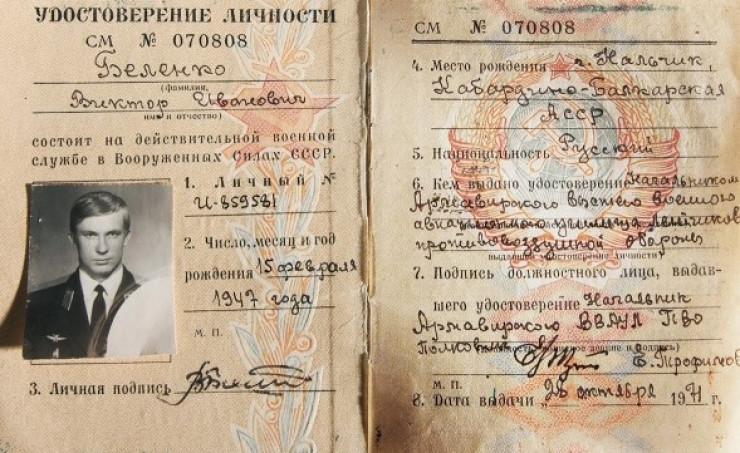 УДОСТОВЕРЕНИЕ ЛИЧНОСТИ
СМ № 070808
Беленко
(фамилия,
Виктор Иванович
имя и отчество)
состоит на действительной военной
службе в Вооруженных Силах СССР.
1. Личный №
И-859581
2. Число, месяц и год
рождения 15 февраля
1947 года
М. П.
3. Личная подпись
СМ № 070808
4. Место рождения г. Нальчик,
Кабардино-Балкарская
АССР
5. Национальность Русский
6. Кем выдано удостоверение Начальником
Армавирского высшего военного
авиационного училища летчиков
противовоздушной обороны
7. Подпись должностного лица, выдав-
шего удостоверение Начальник
Армавирского ВВАУЛ ПВО
Полковник Б. Трофимов
М. П.
8. Дата выдачи „28 октября 1971 г.